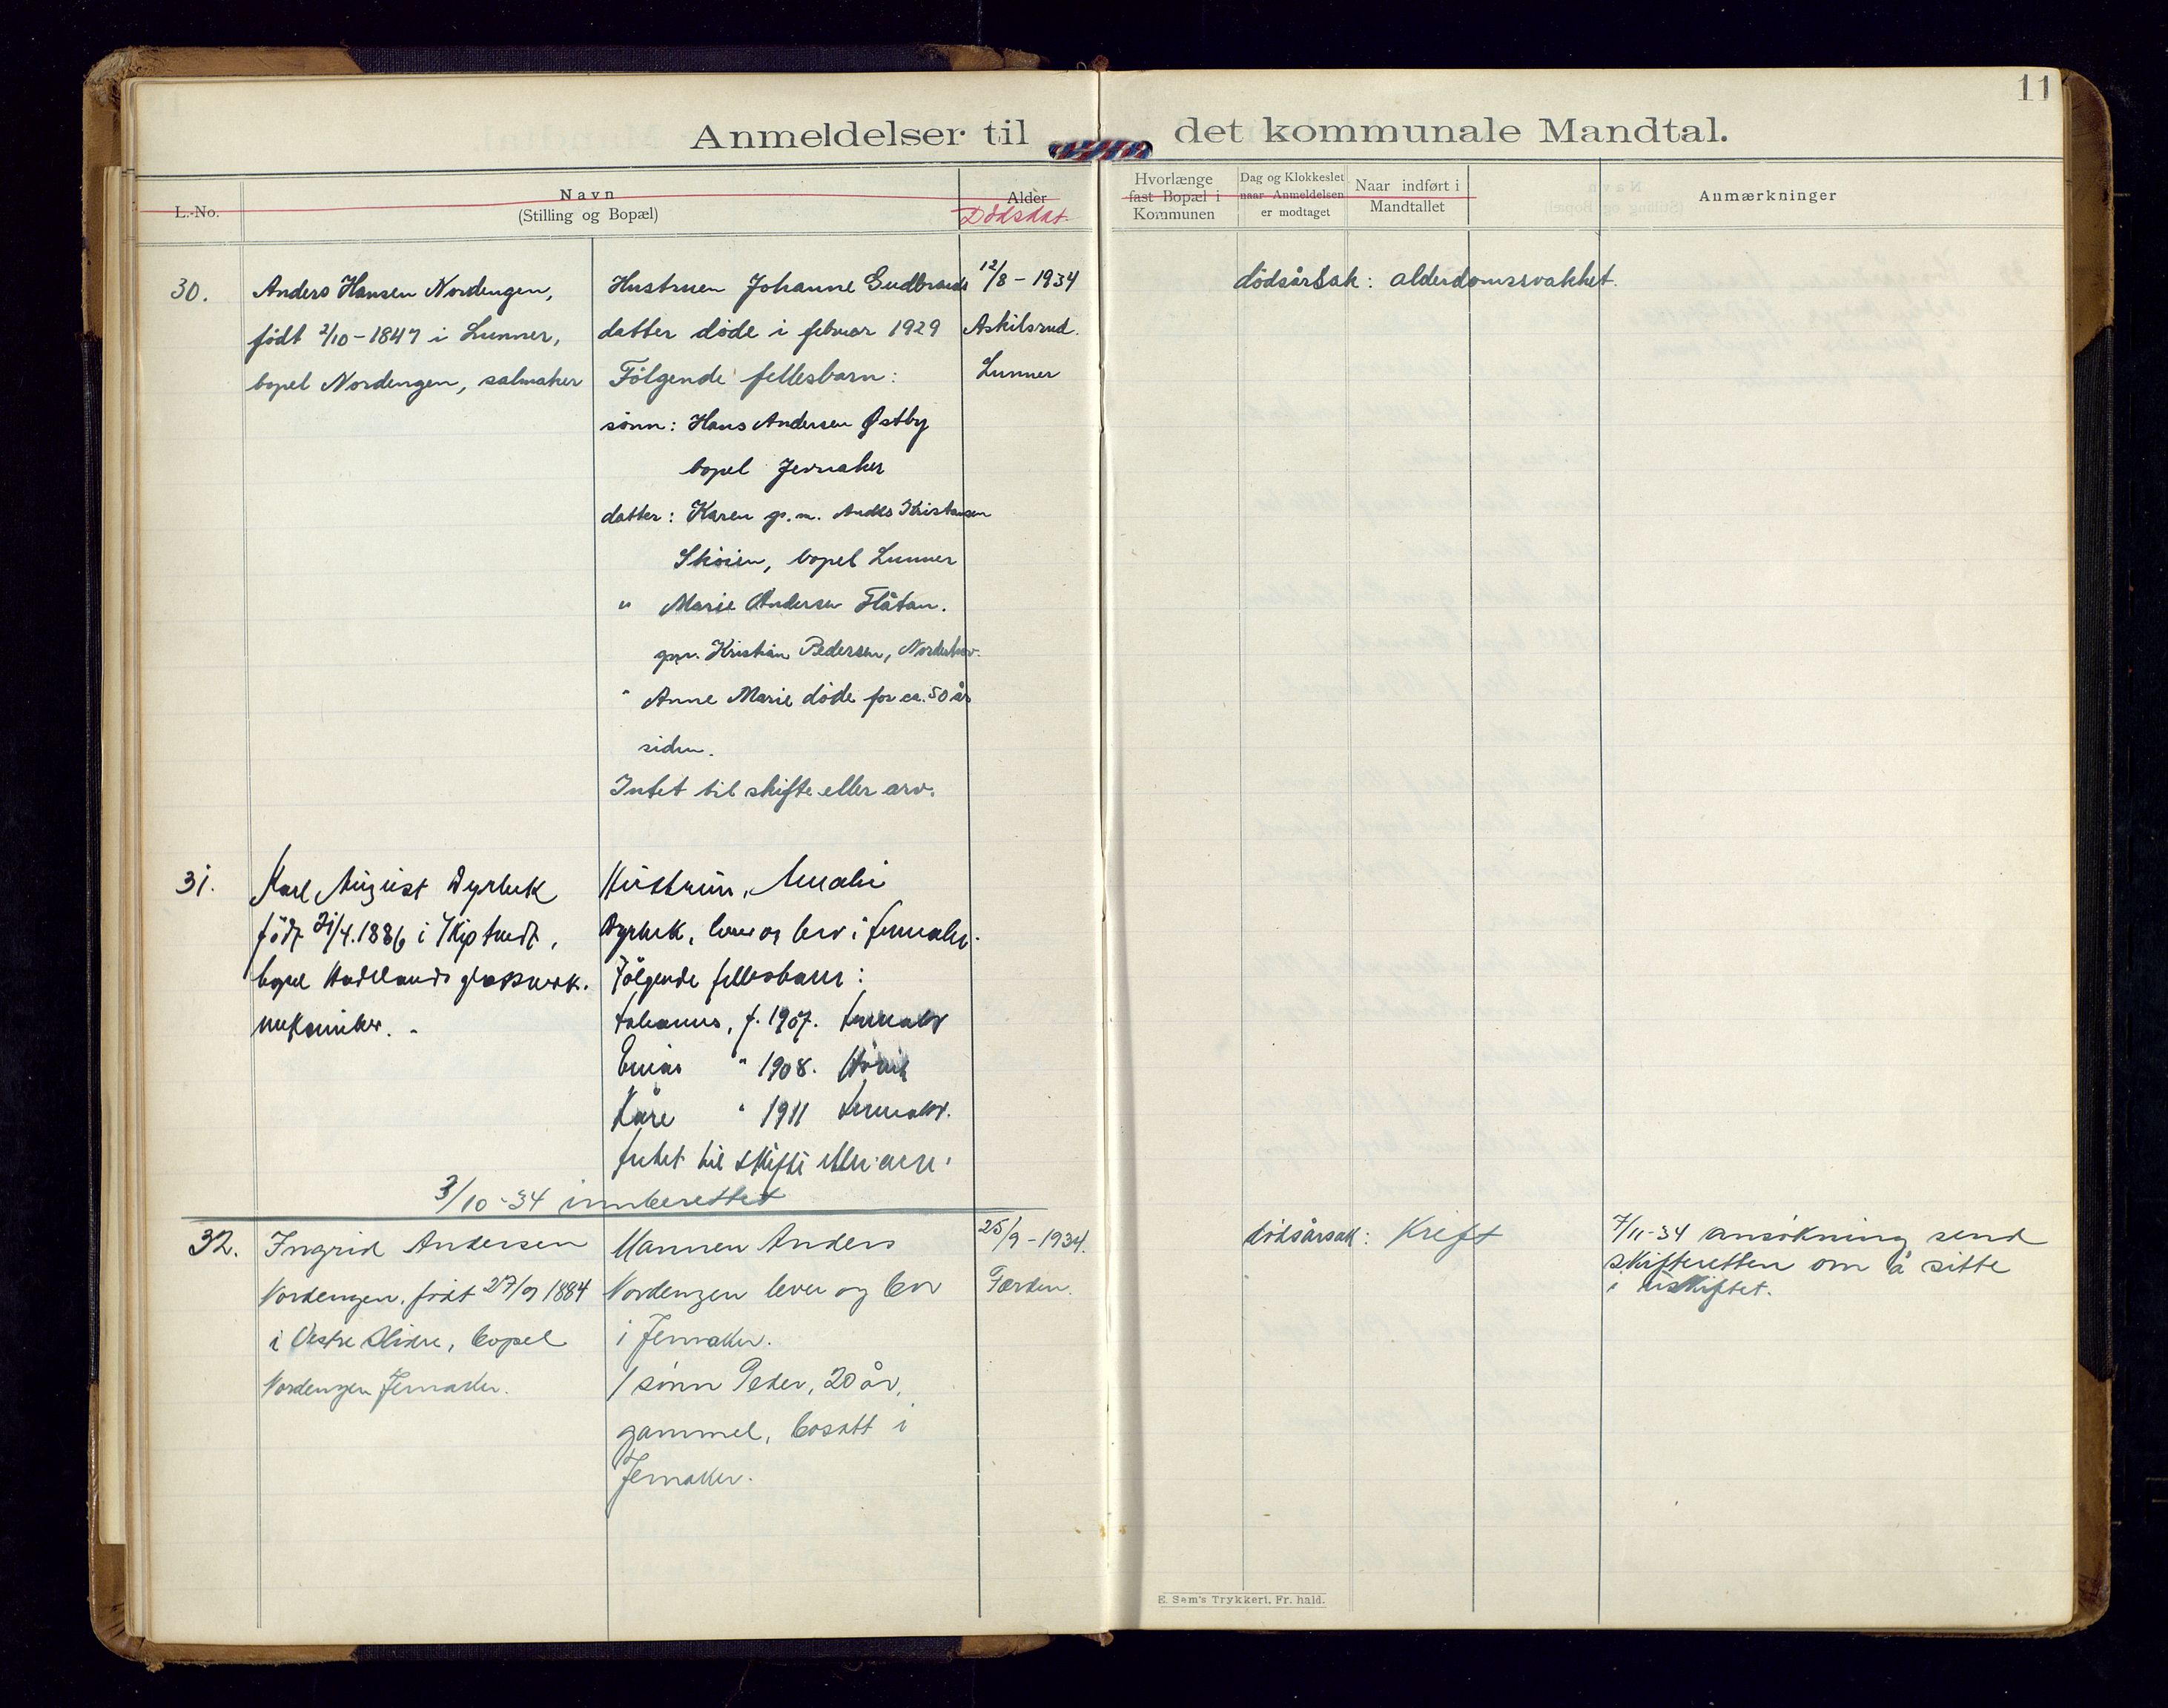 11
Anmeldelser til det kommunale Mandtal.
L.-No.
Navn
(Stilling og Bopæl)
Alder
Dödsdat.
Hvorlænge
fast Bopæl i
Kommunen
Dag og Klokkeslet
naar Anmeldelsen
er modtaget
Naar indført i
Mandtallet
Anmærkninger
30.
Anders Hansen Nordengen,
født 2/10-1847 i Lunner,
bopel Nordengen, salmaker
Hustruen Johanne Gudbrands
datter døde i februar 1929
Følgende fellesbarn:
sønn: Hans Andersen Østby
bopel Jevnaker
datter: Karen g.m. Anders Kristiansen
Skøien, bopel Lunner
" Marie Andersen Flåtan.
g.m. Kristian Pedersen, Norderhov.
" Anne Marie døde for ca. 50 år
siden.
Intet til skifte eller arv.
12/8-1934
Askilsrud.
Lunner
dödsårsak: alderdomssvakhet.
31.
Karl August Dyrbek
født 21/4.1886 i
bopel Hadelands glassverk.
mekaniker.
Hustrun, Amalie
Dyrbek, lever og bor i Jevnaker.
Følgende fellesbarn:
Johannes, f. 1907. Jevnaker
Einar " 1908. Høvik
Kåre " 1911 Jevnaker.
Intet til skifte eller arv.
3/10-34 innberettet
32.
Ingrid Andersen
Nordengen, født 27/9 1884
i Vestre Slidre, bopel
Nordengen Jevnaker.
Mannen Anders
Nordengen lever og bor
i Jevnaker.
1 sønn Peder, 20 år,
gammel, bosatt i
Jevnaker.
25/9-1934.
Færden.
dödsårsak: Kreft
7/11-34 ansökning send
skifteretten om å sitte
i uskiftet.
E. Sem's Trykkeri, Fr. hald.